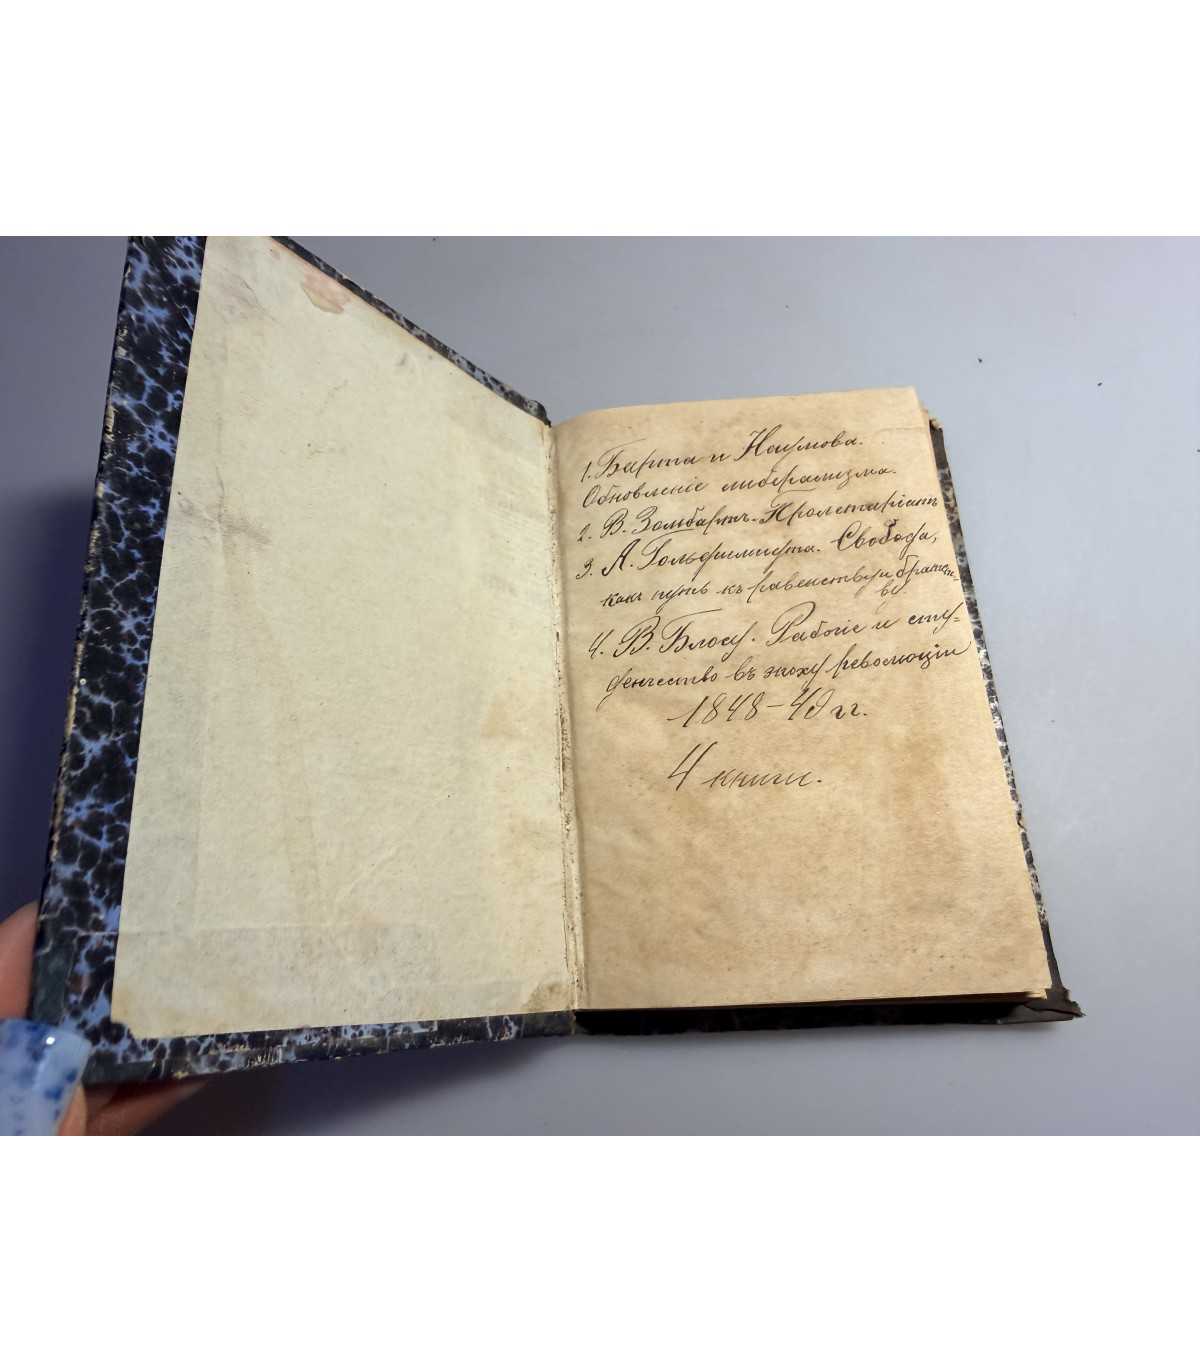 1. Барта и Наумова.
Обновленіе либерализма.
2. В. Зомбартъ. Пролетаріатъ
3. А. Гольдшмидта. Свобода,
какъ путь къ равенству и братст-
ву.
4. В. Блосъ. Рабочіе и сту-
денчество въ эпоху революціи
1848-49 гг.
4 книги.